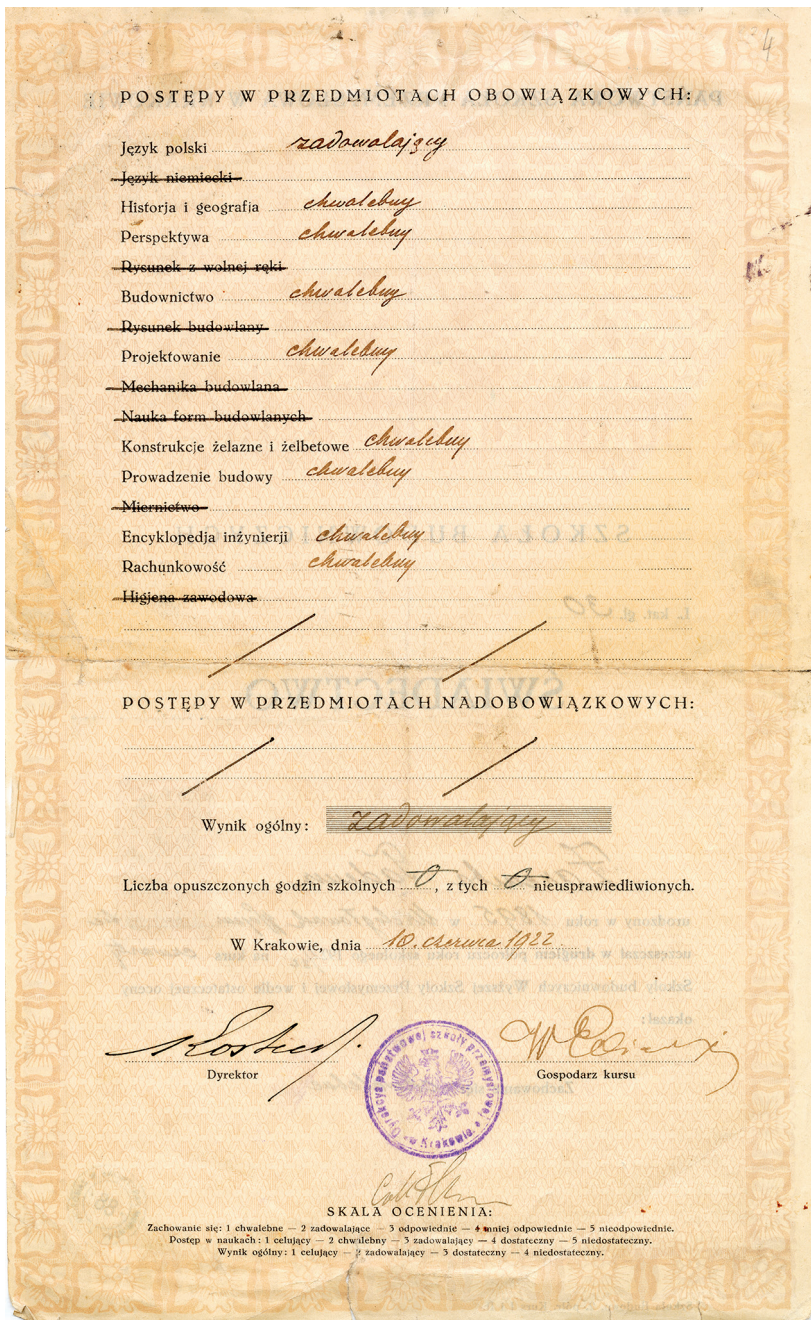 4
POSTĘPY W PRZEDMIOTACH OBOWIĄZKOWYCH:
Język polski zadowalający
Język niemiecki
Historja i geografia chwalebny
Perspektywa chwalebny
Rysunek z wolnej ręki
Budownictwo chwalebny
Rysunek budowlany
Projektowanie chwalebny
Mechanika budowlana
Nauka form budowlanych
Konstrukcje żelazne i żelbetowe chwalebny
Prowadzenie budowy chwalebny
Miernictwo
Encyklopedja inżynierji chwalebny
Rachunkowość chwalebny
Higjena zawodowa
POSTĘPY W PRZEDMIOTACH NADOBOWIĄZKOWYCH:
Wynik ogólny: zadowalający
Liczba opuszczonych godzin szkolnych 0, z tych 0 nieusprawiedliwionych.
W Krakowie, dnia 10. czerwca 1922.
Dyrektor
Gospodarz kursu
Dyrekcya państwowej szkoły przemysłowej w Krakowie
SKALA OCENIENIA:
Zachowanie się: 1 chwalebne — 2 zadowalające — 3 odpowiednie — 4 mniej odpowiednie — 5 nieodpowiednie.
Postęp w naukach: 1 celujący — 2 chwalebny — 3 zadowalający — 4 dostateczny — 5 niedostateczny.
Wynik ogólny: 1 celujący — 2 zadowalający — 3 dostateczny — 4 niedostateczny.